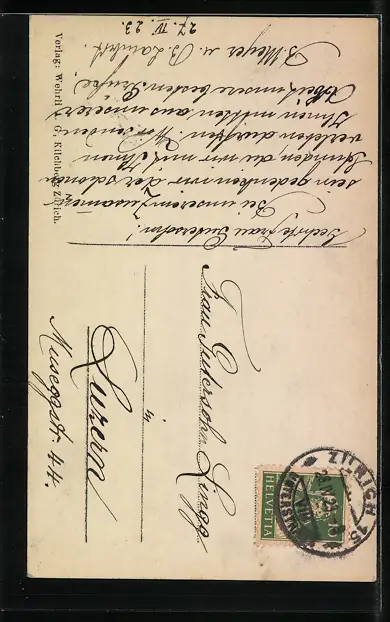 Geehrte Frau Gutersohn!
Bei unserem Zusammen-
sein gedenken wir der schönen
Stunden, die wir mit Ihnen
verleben durften. Wir senden
Ihnen mitten aus unserer
Arbeit unsere besten Grüsse.
B. Meyer u. B. Lambert.
27. IV. 23.
Verlag: Wehrli A.-G. Kilchberg-Zürich.
Frau Gutersohn-Lingg
in
Luzern
Musegstr. 44.
HELVETIA
10
ZÜRICH